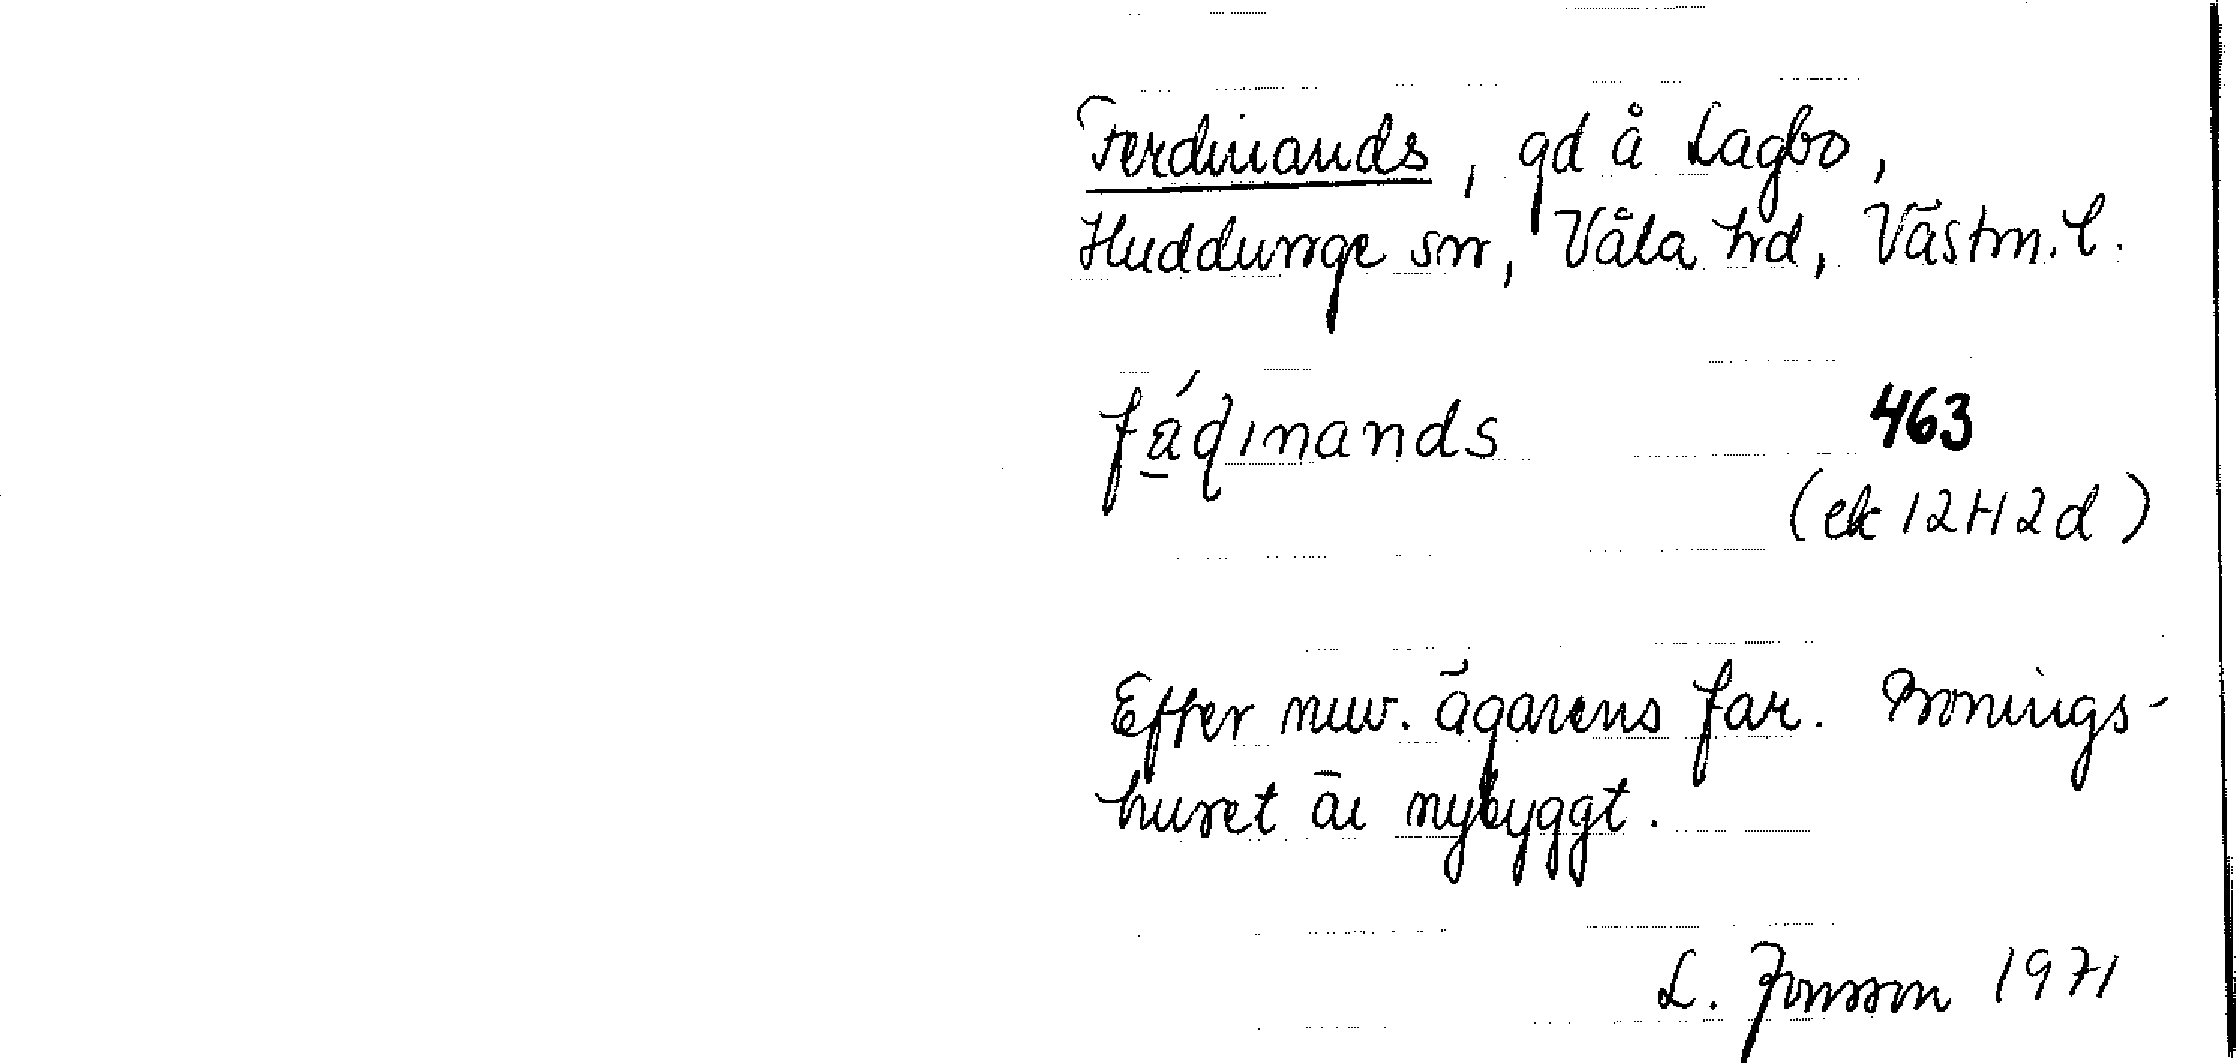 Ferdinands, gd å Lagbo,
Huddunge sn, Våla hd, Västm. l.
fá̲ɖınands 463
(ek 12H2d)
Efter nuv. ägarens far. Bonings-
huset är nybyggt.
L. Jonsson 1971